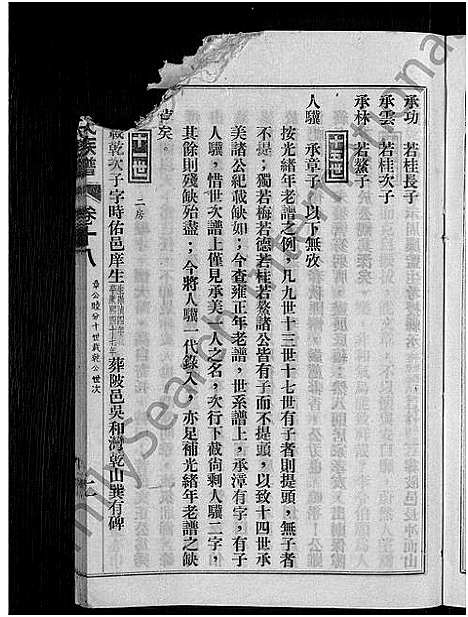 承功 若桂長子
承雲 若桂次子
承林 若鰲子
十五世
人驥 承章子 以下無攷
按光緒年老譜之例，凡九世十三世十七世有子者則提頭，無子者
不提；獨若梅若德若桂若鰲諸公皆有子而不提頭，以致十四世承
美諸公紀載缺如；今查雍正年老譜，世系譜上，承漳有字，有子
人驥，惜世次譜上僅見承美一人之名，次行下截尚剩人驥二字，
其餘則殘缺始盡；今將人驥一代錄入，亦足補光緒年老譜之缺
矣。
十一世 二房
載乾次子字時佑邑庠生 葬陂邑吳和灣乾山巽有碑
氏族譜 卷十八 章公睦分十世載乾公世次
FamilySearch International